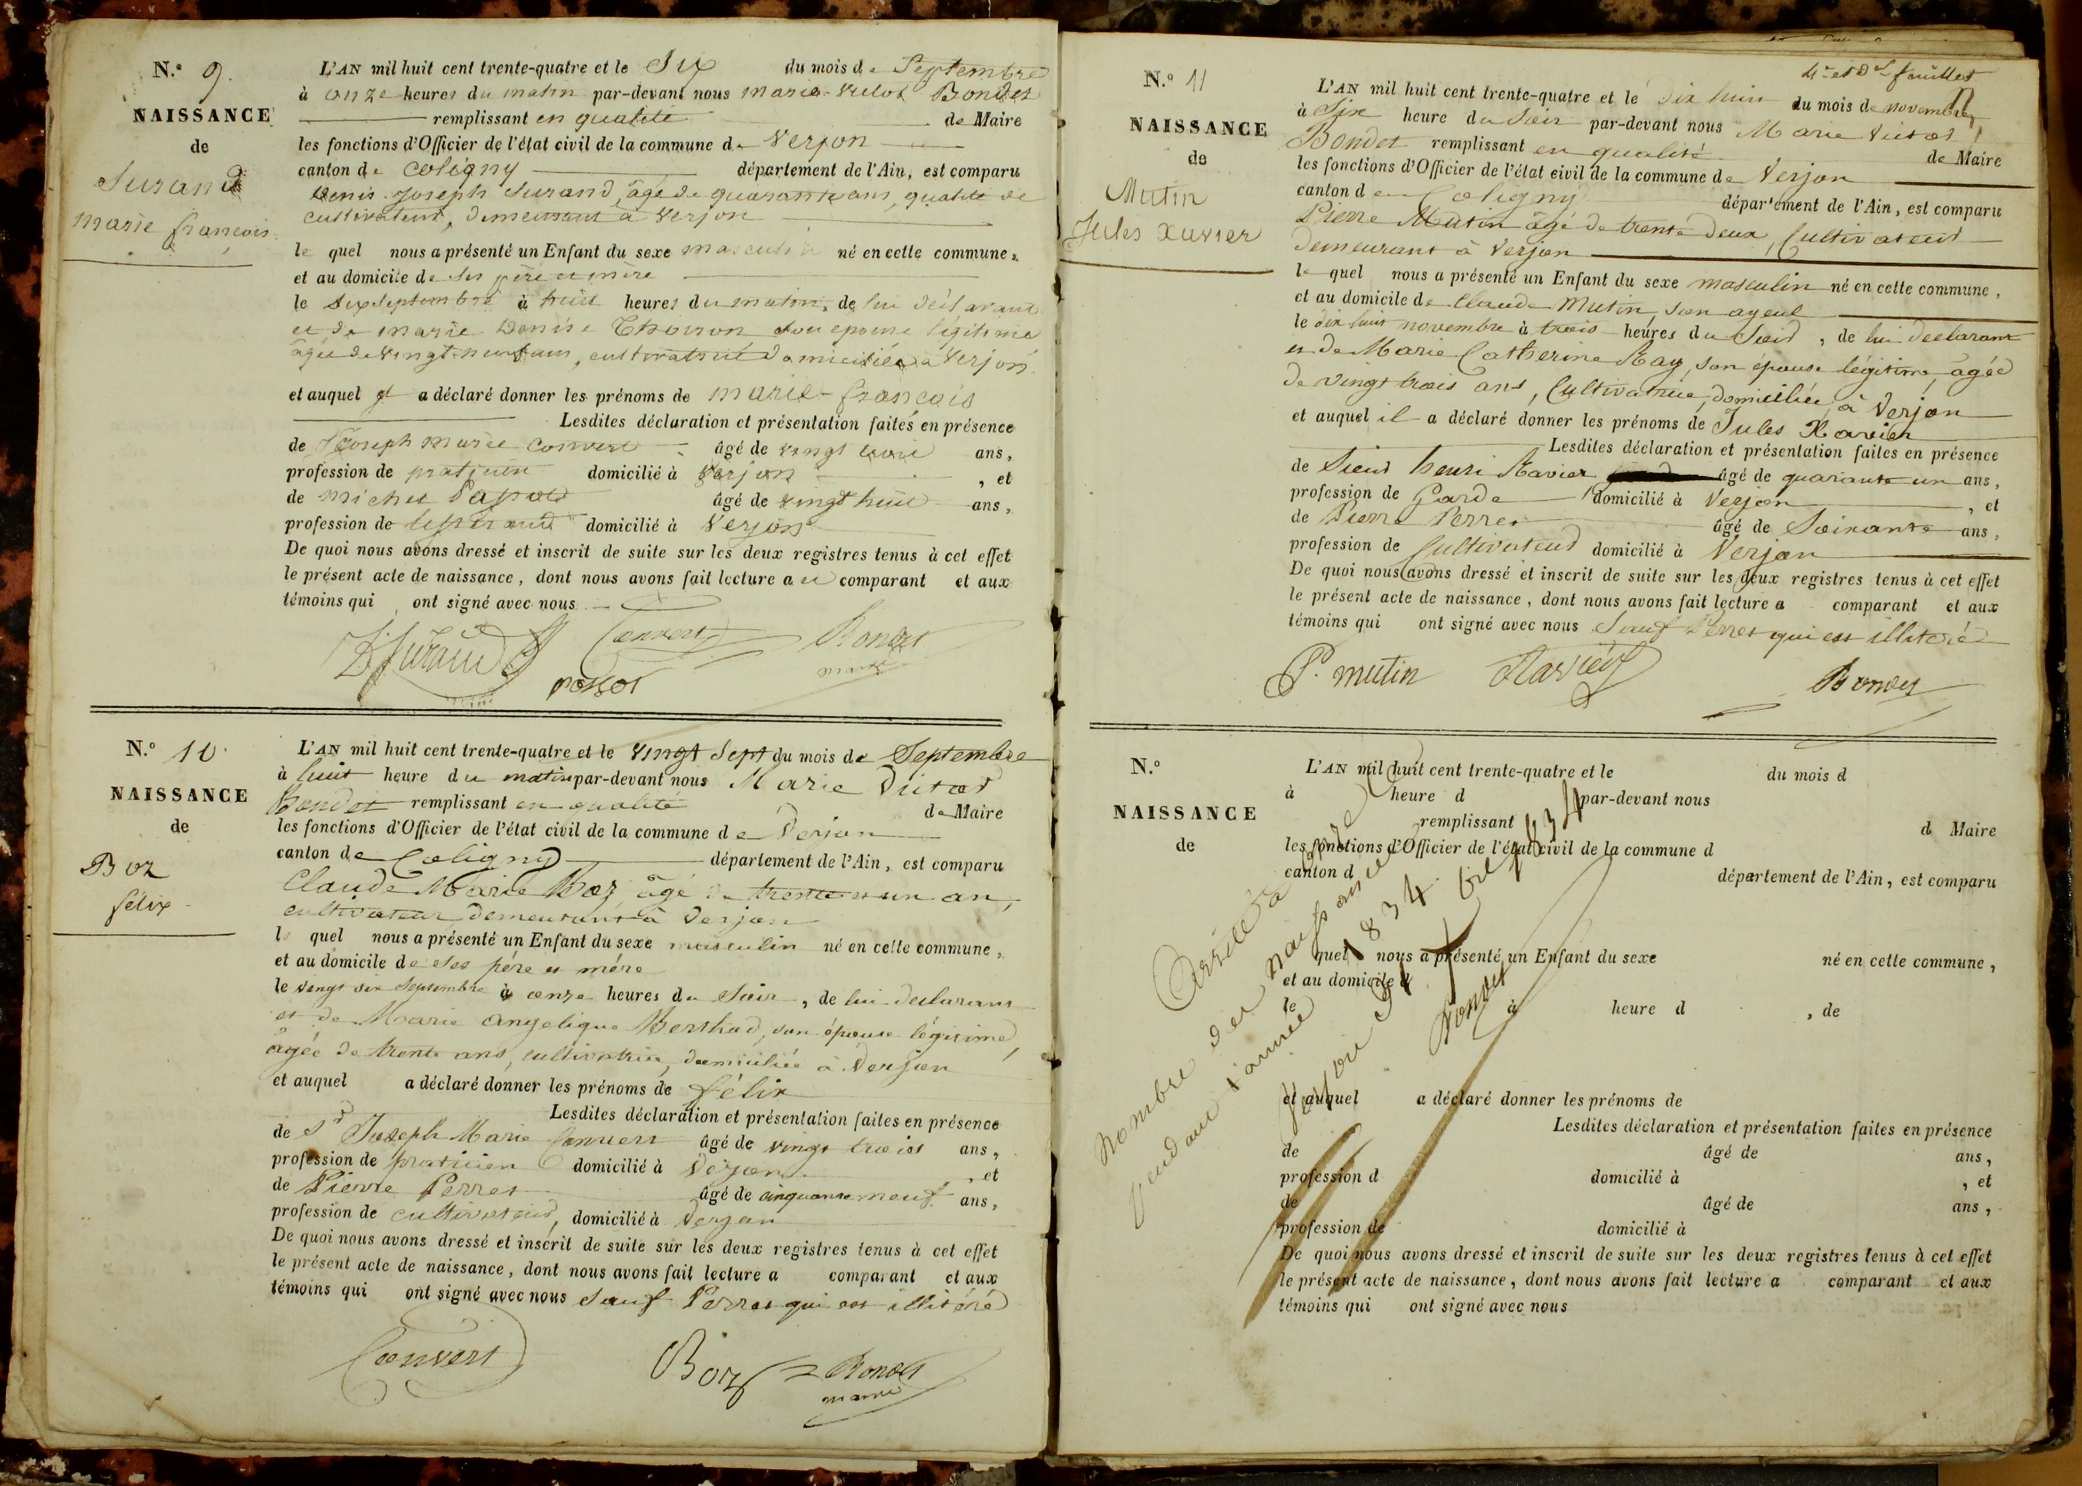 N.º 9.
NAISSANCE
de
Surand
marie françois
L'AN mil huit cent trente-quatre et le Six du mois de Septembre
à onze heures du matin par-devant nous marie vitot Bondet
remplissant en qualité de Maire
les fonctions d'Officier de l'état civil de la commune de Verjon
canton de Coligny département de l'Ain, est comparu
Denis Joseph Surand, âgé de quarante ans, qualité de
cultivateur, demeurant à Verjon
le quel nous a présenté un Enfant du sexe masculin né en cette commune,
et au domicile de ses père et mère
le Six Septembre à huit heures du matin, de lui déclarant
et de marie Denise Thoiron son épouse légitime
âgée de vingt neuf ans, domiciliée à Verjon
et auquel il a déclaré donner les prénoms de marie-françois
Lesdites déclaration et présentation faites en présence
de Joseph marie Convert âgé de vingt trois ans,
profession de praticien domicilié à Verjon, et
de michel âgé de vingt huit ans,
profession de domicilié à Verjon
De quoi nous avons dressé et inscrit de suite sur les deux registres tenus à cet effet
le présent acte de naissance, dont nous avons fait lecture au comparant et aux
témoins qui ont signé avec nous
D J Surand Convert Bondet
maire
N.º 10.
NAISSANCE
de
Boz
félix
L'AN mil huit cent trente-quatre et le vingt Sept du mois de Septembre
à huit heure du matin par-devant nous Marie Vitot
Bondet remplissant en qualité de Maire
les fonctions d'Officier de l'état civil de la commune de Verjon
canton de Coligny département de l'Ain, est comparu
Claude Marie Boz, âgé de trente et un an,
cultivateur demeurant à Verjon
l quel nous a présenté un Enfant du sexe masculin né en cette commune,
et au domicile de ses père et mère
le vingt six Septembre à onze heures du Soir, de lui declarant
et de Marie angelique Berthod, son épouse légitime,
âgée de trente ans, cultivatrice, domiciliée à Verjon
et auquel a déclaré donner les prénoms de félix
Lesdites déclaration et présentation faites en présence
de Sr Joseph Marie Convert âgé de vingt trois ans,
profession de praticien domicilié à Verjon, et
de Pierre Perret âgé de cinquante neuf ans,
profession de cultivateur, domicilié à Verjon
De quoi nous avons dressé et inscrit de suite sur les deux registres tenus à cet effet
le présent acte de naissance, dont nous avons fait lecture a comparant et aux
témoins qui ont signé avec nous Sauf Perret qui est illitéré
Convert Boz Bondet
maire
4e et Der feuillet
N.º 11
NAISSANCE
de
Mutin
Jules xavier
L'AN mil huit cent trente-quatre et le dix huit du mois de novembre,
à Six heure du Soir par-devant nous Marie Vitot
Bondet remplissant en qualité de Maire
les fonctions d'Officier de l'état civil de la commune de Verjon
canton de Coligny département de l'Ain, est comparu
Pierre Mutin âgé de trente deux, Cultivateur
demeurant à Verjon
le quel nous a présenté un Enfant du sexe masculin né en cette commune,
et au domicile de Claude Mutin, son ayeul
le dix huit novembre à trois heures du Soir, de lui declarant
et de Marie Catherine Ray, son épouse légitime, âgée
de vingt trois ans, Cultivatrice, domiciliée à Verjon
et auquel il a déclaré donner les prénoms de Jules Xavier
Lesdites déclaration et présentation faites en présence
de Sieur henri Ravier âgé de quarante un ans,
profession de Garde domicilié à Verjon, et
de Pierre Perret âgé de Soixante ans,
profession de Cultivateur domicilié à Verjon
De quoi nous avons dressé et inscrit de suite sur les deux registres tenus à cet effet
le présent acte de naissance, dont nous avons fait lecture a comparant et aux
témoins qui ont signé avec nous Sauf Perret qui est illitéré
P. mutin Ravier Bondet
N.º
NAISSANCE
de
L'AN mil huit cent trente-quatre et le du mois d
à heure d par-devant nous
remplissant d Maire
les fonctions d'Officier de l'état civil de la commune d
canton d département de l'Ain, est comparu
quel nous a présenté un Enfant du sexe né en cette commune,
et au domicile d
le à heure d , de
et auquel a déclaré donner les prénoms de
Lesdites déclaration et présentation faites en présence
de âgé de ans,
profession d domicilié à , et
de âgé de ans,
profession de domicilié à
De quoi nous avons dressé et inscrit de suite sur les deux registres tenus à cet effet
le présent acte de naissance, dont nous avons fait lecture a comparant et aux
témoins qui ont signé avec nous
Arrêté à onze le
nombre des naissances
pendant l'année 1834.
Verjon 31 Xbre 1834
Bondet